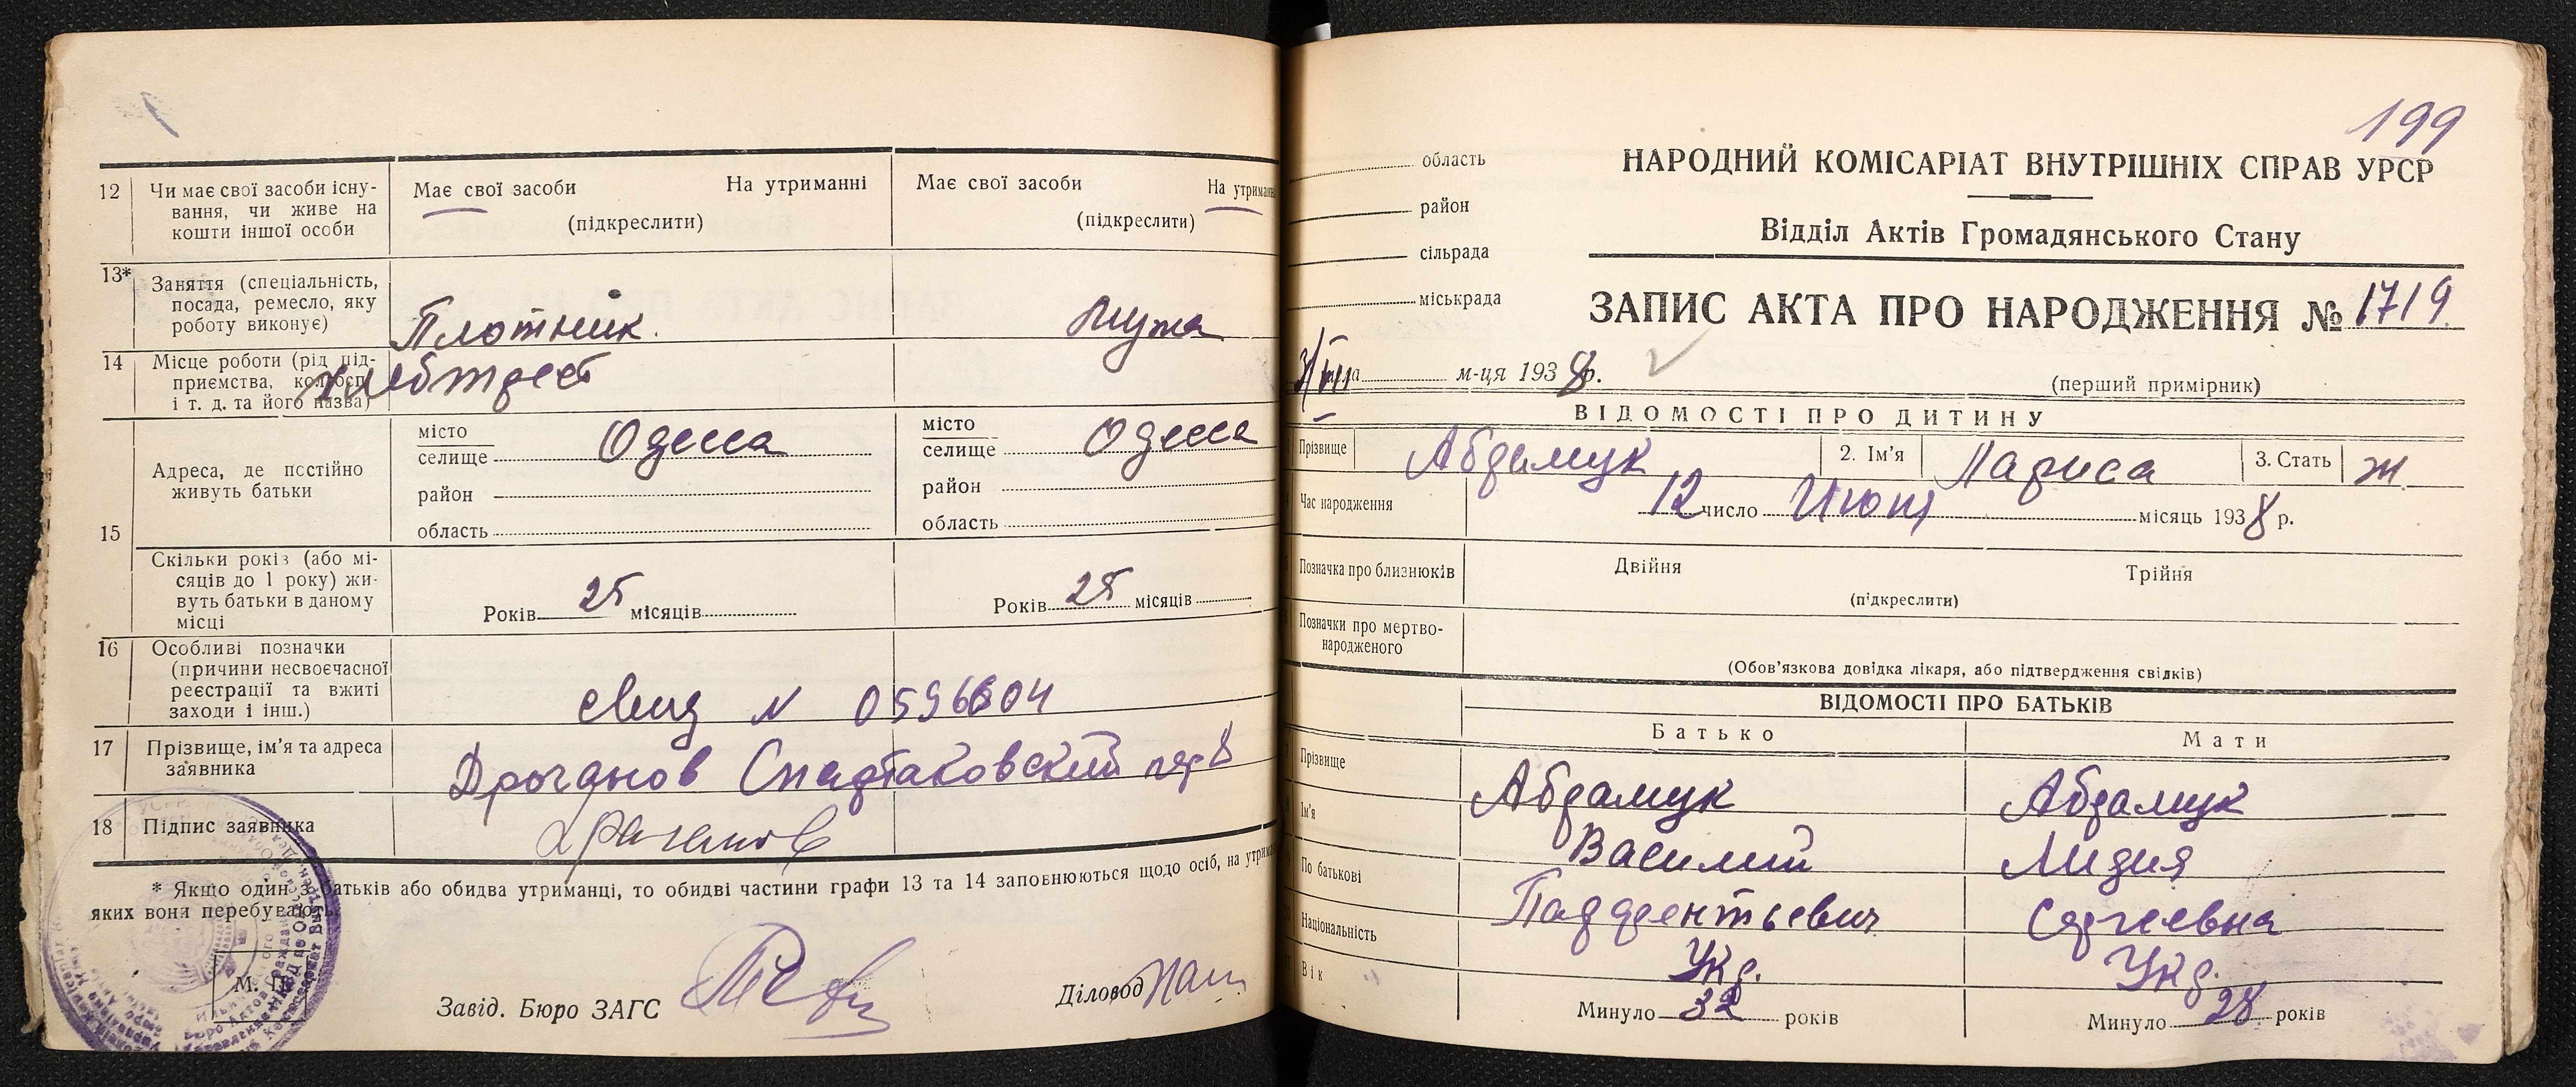 12 Чи має свої засоби існу-
вання, чи живе на
кошти іншої особи
Має свої засоби На утриманні
(підкреслити)
Має свої засоби На утриманні
(підкреслити)
13* Заняття (спеціальність,
посада, ремесло, яку
роботу виконує)
Плотник.
мужа
14 Місце роботи (рід під-
приємства, колгосп
і т. д. та його назва)
хлебтрест
15
Адреса, де постійно
живуть батьки
місто
селище Одесса
район
область
місто
селище Одесса
район
область
Скільки років (або мі-
сяців до 1 року) жи-
вуть батьки в даному
місці
Років 25 місяців
Років 25 місяців
16 Особливі позначки
(причини несвоєчасної
реєстрації та вжиті
заходи і інш.)
свид N
17 Прізвище, ім'я та адреса
заявника
Драганов Спартаковский пер 8
18 Підпис заявника
Драганов
* Якщо один з батьків або обидва утриманці, то обидві частини графи 13 та 14 заповнюються щодо осіб, на утрим
яких вони перебувають.
М. П.
Завід. Бюро ЗАГС
Діловод
199
область
район
сільрада
міськрада
НАРОДНИЙ КОМІСАРІАТ ВНУТРІШНІХ СПРАВ УРСР
Відділ Актів Громадянського Стану
ЗАПИС АКТА ПРО НАРОДЖЕННЯ № 1719
м-ця 1938 р.
(перший примірник)
ВІДОМОСТІ ПРО ДИТИНУ
Прізвище Абрамчук 2. Ім'я Лариса 3. Стать ж.
Час народження 12 число місяць 1938 р.
Позначка про близнюків Двійня Трійня
(підкреслити)
Позначки про мертво-
народженого
(Обов'язкова довідка лікаря, або підтвердження свідків)
ВІДОМОСТІ ПРО БАТЬКІВ
Батько Мати
Прізвище Абрамчук Абрамчук
Ім'я Василий Лидия
По батькові Сергеевна
Національність Укр. Укр.
Вік Минуло 32 років Минуло 28 років